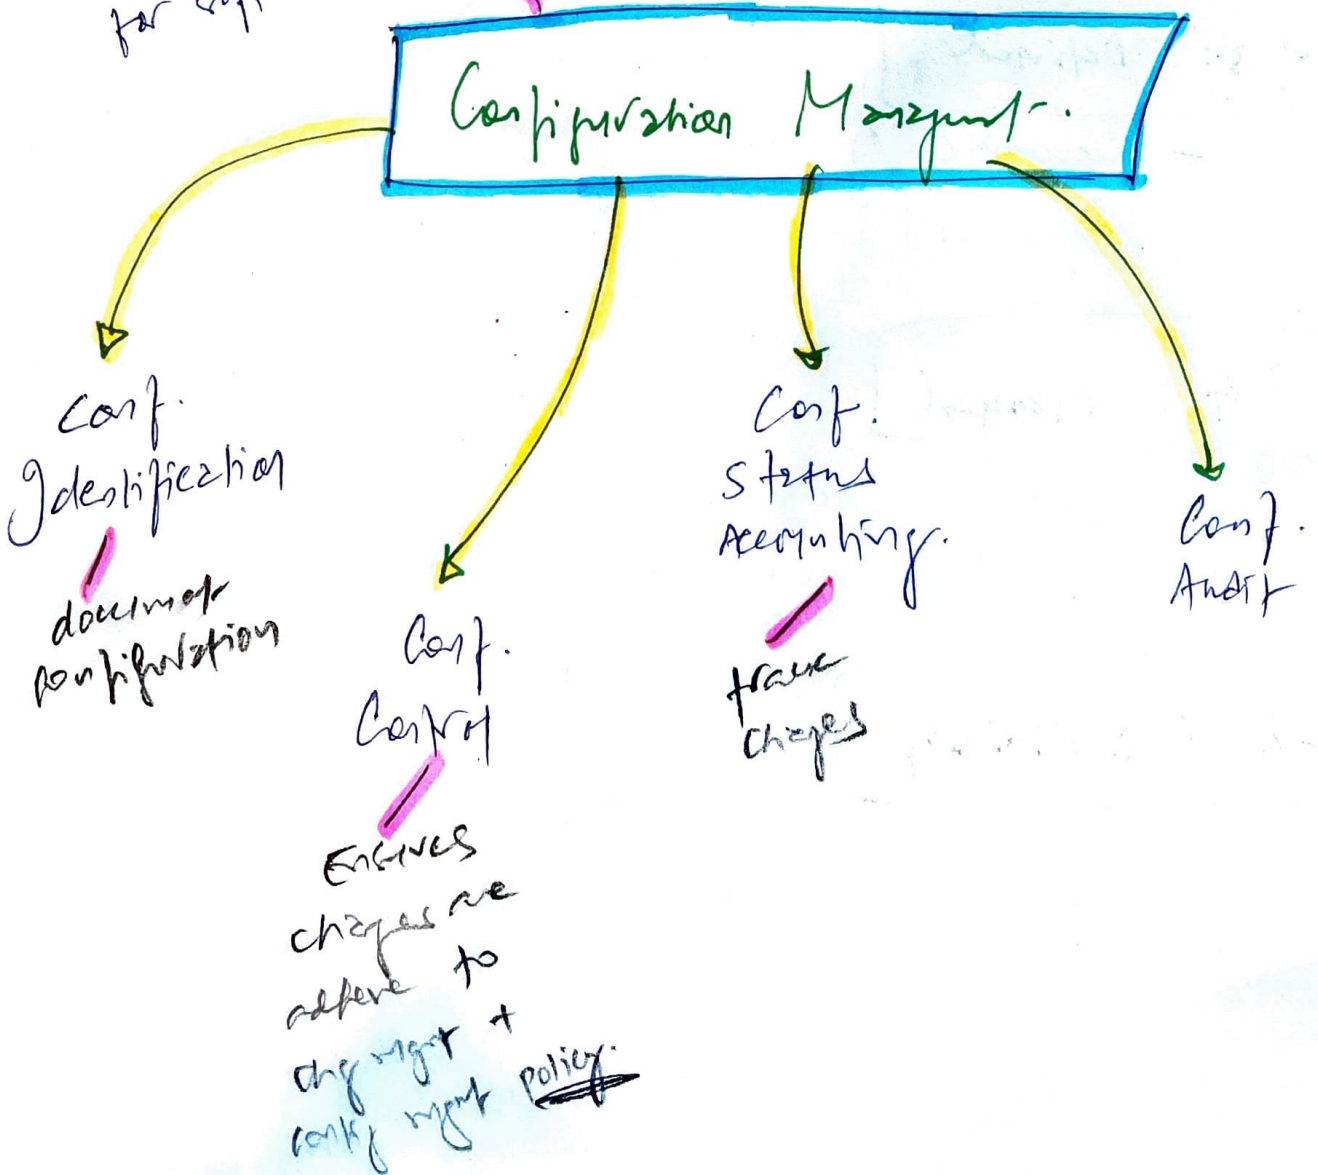 for
Configuration Managment.
Conf.
Identification
document
configuration
Conf.
Control
Ensures
changes are
adhere to
chg mgmt +
config mgmt policy.
Conf.
Status
Accounting.
track
changes
Conf.
Audit